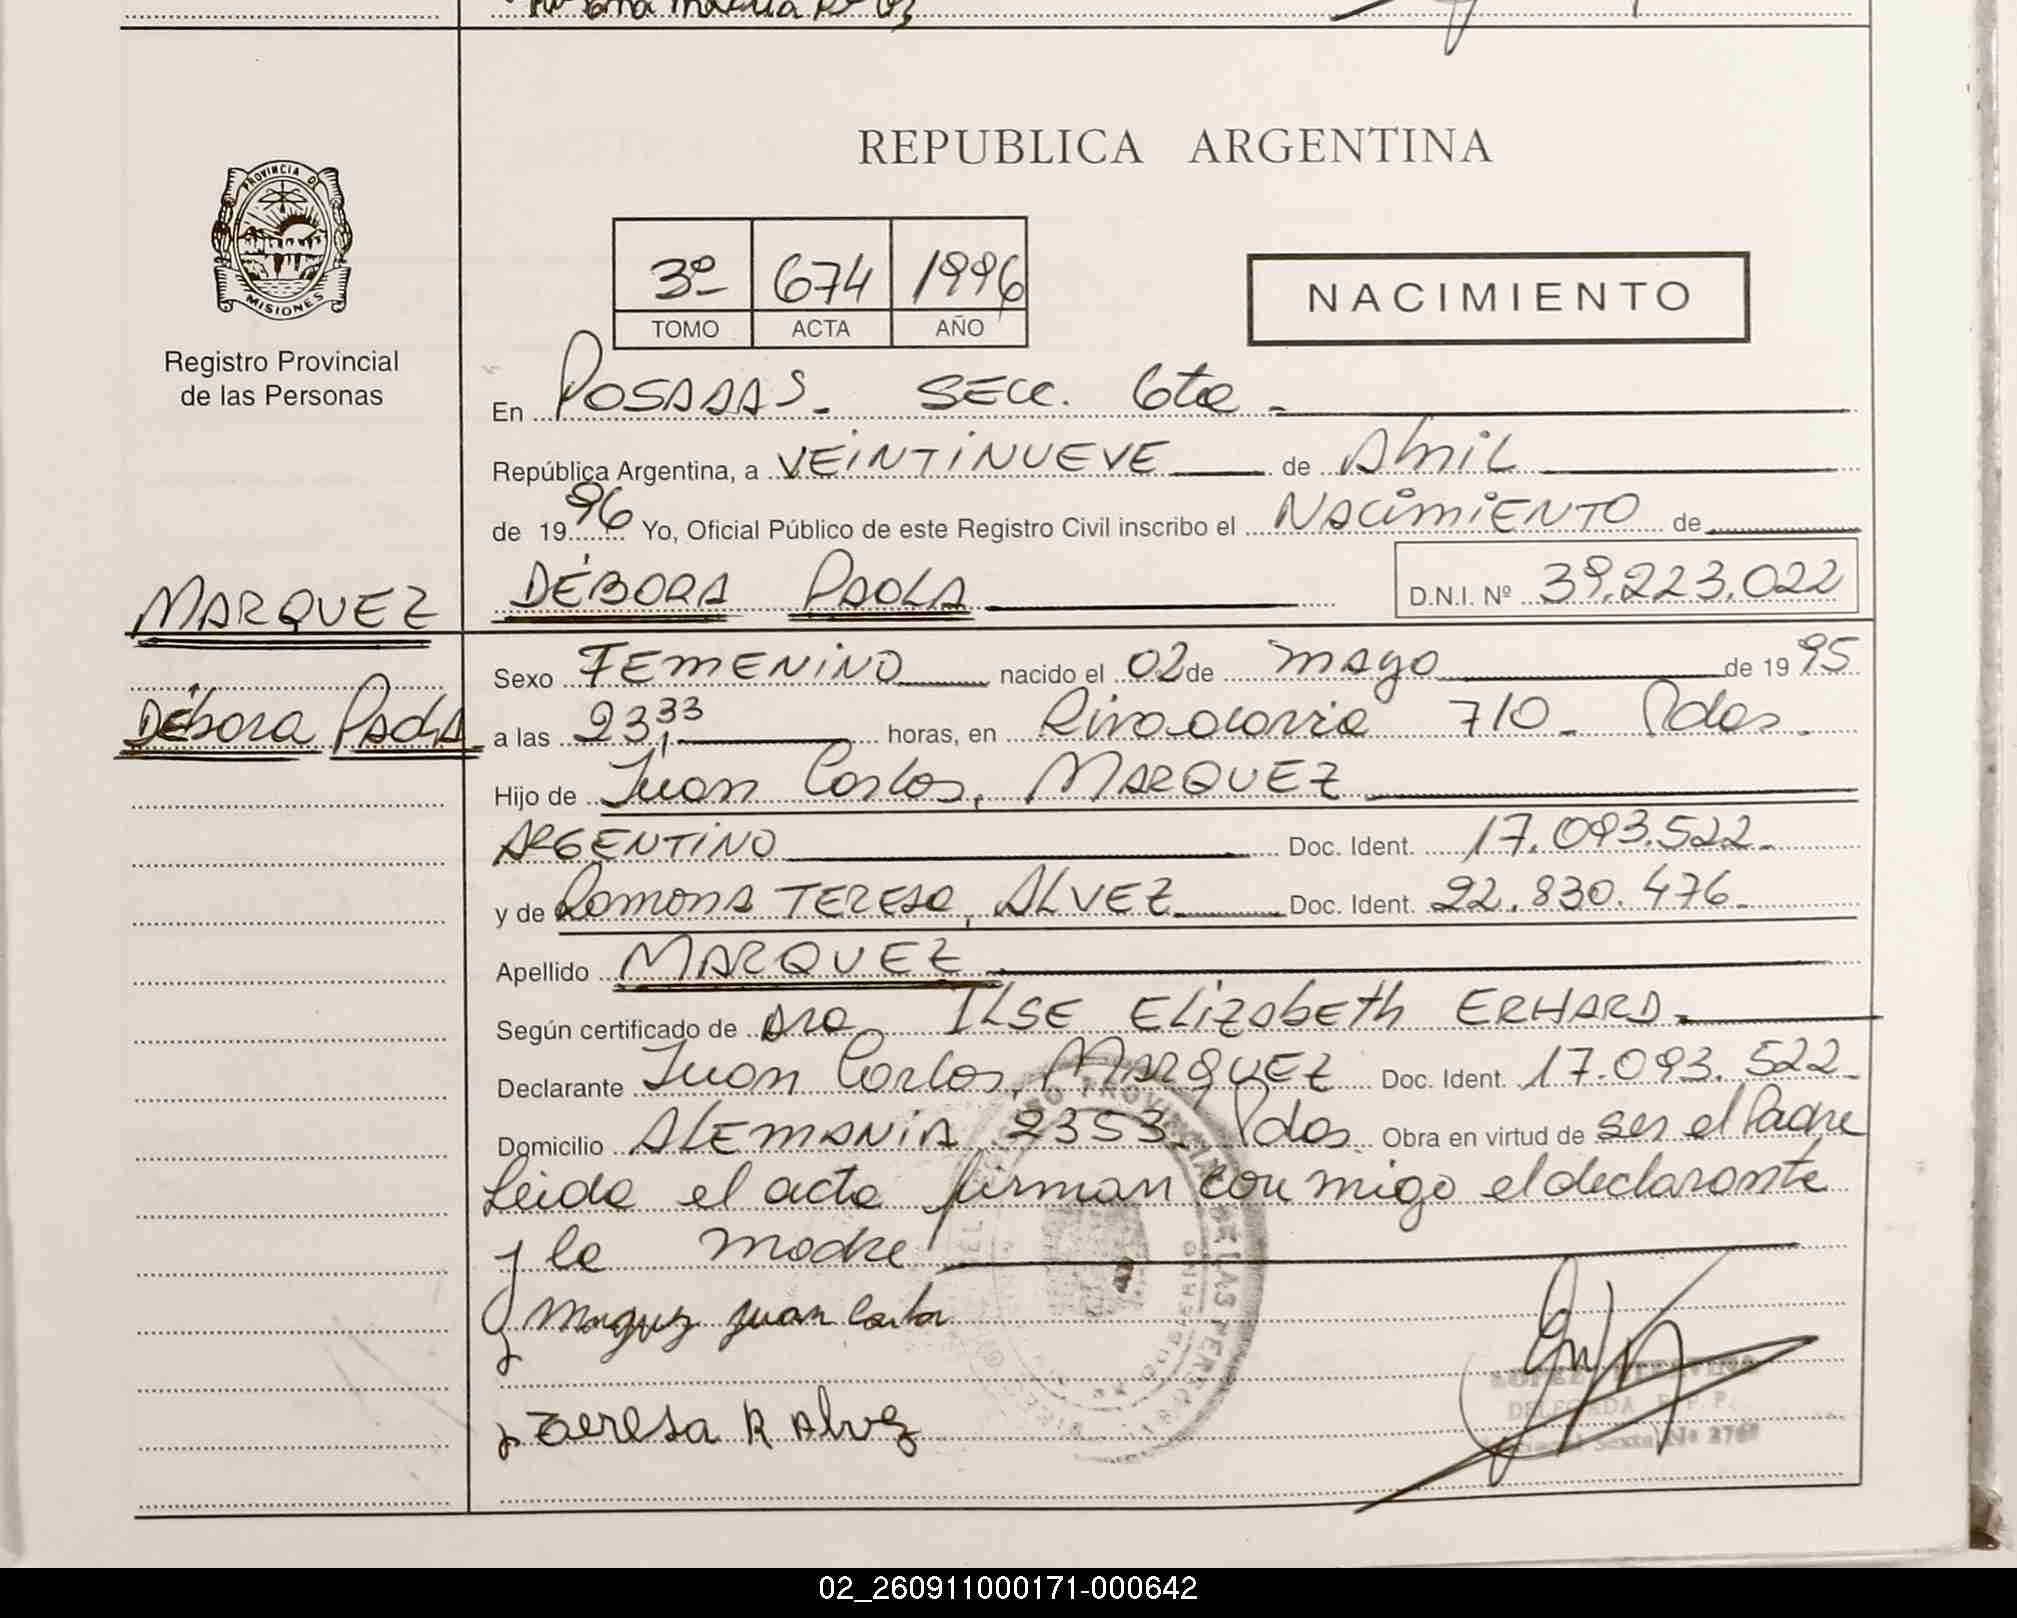 REPUBLICA ARGENTINA
PROVINCIA DE
MISIONES
Registro Provincial
de las Personas
3º 674 1996
TOMO ACTA AÑO
NACIMIENTO
En POSADAS. SECC. 6ta
República Argentina, a VEINTINUEVE de Abril
de 1996 Yo, Oficial Público de este Registro Civil inscribo el NACIMIENTO de
MARQUEZ
DÉBORA PAOLA D.N.I. Nº 39.223.022
Sexo FEMENINO nacido el 02 de mayo de 1995
Débora PAOLA
a las 23,33 horas, en Rivadavia 710 - Pdas.
Hijo de Juan Carlos, MARQUEZ
ARGENTINO Doc. Ident. 17.093.522
y de Ramona TERESA, ALVEZ Doc. Ident. 22.830.476
Apellido MARQUEZ
Según certificado de Dra ILSE Elizabeth ERHARD
Declarante Juan Carlos, MARQUEZ Doc. Ident. 17.093.522
Domicilio ALEMANIA 2353 Pdas. Obra en virtud de ser el Padre
Leida el acta firman con migo el declarante
y la madre
Marquez Juan Carlos
Teresa R Alvez
DELEGADA
02_260911000171-000642